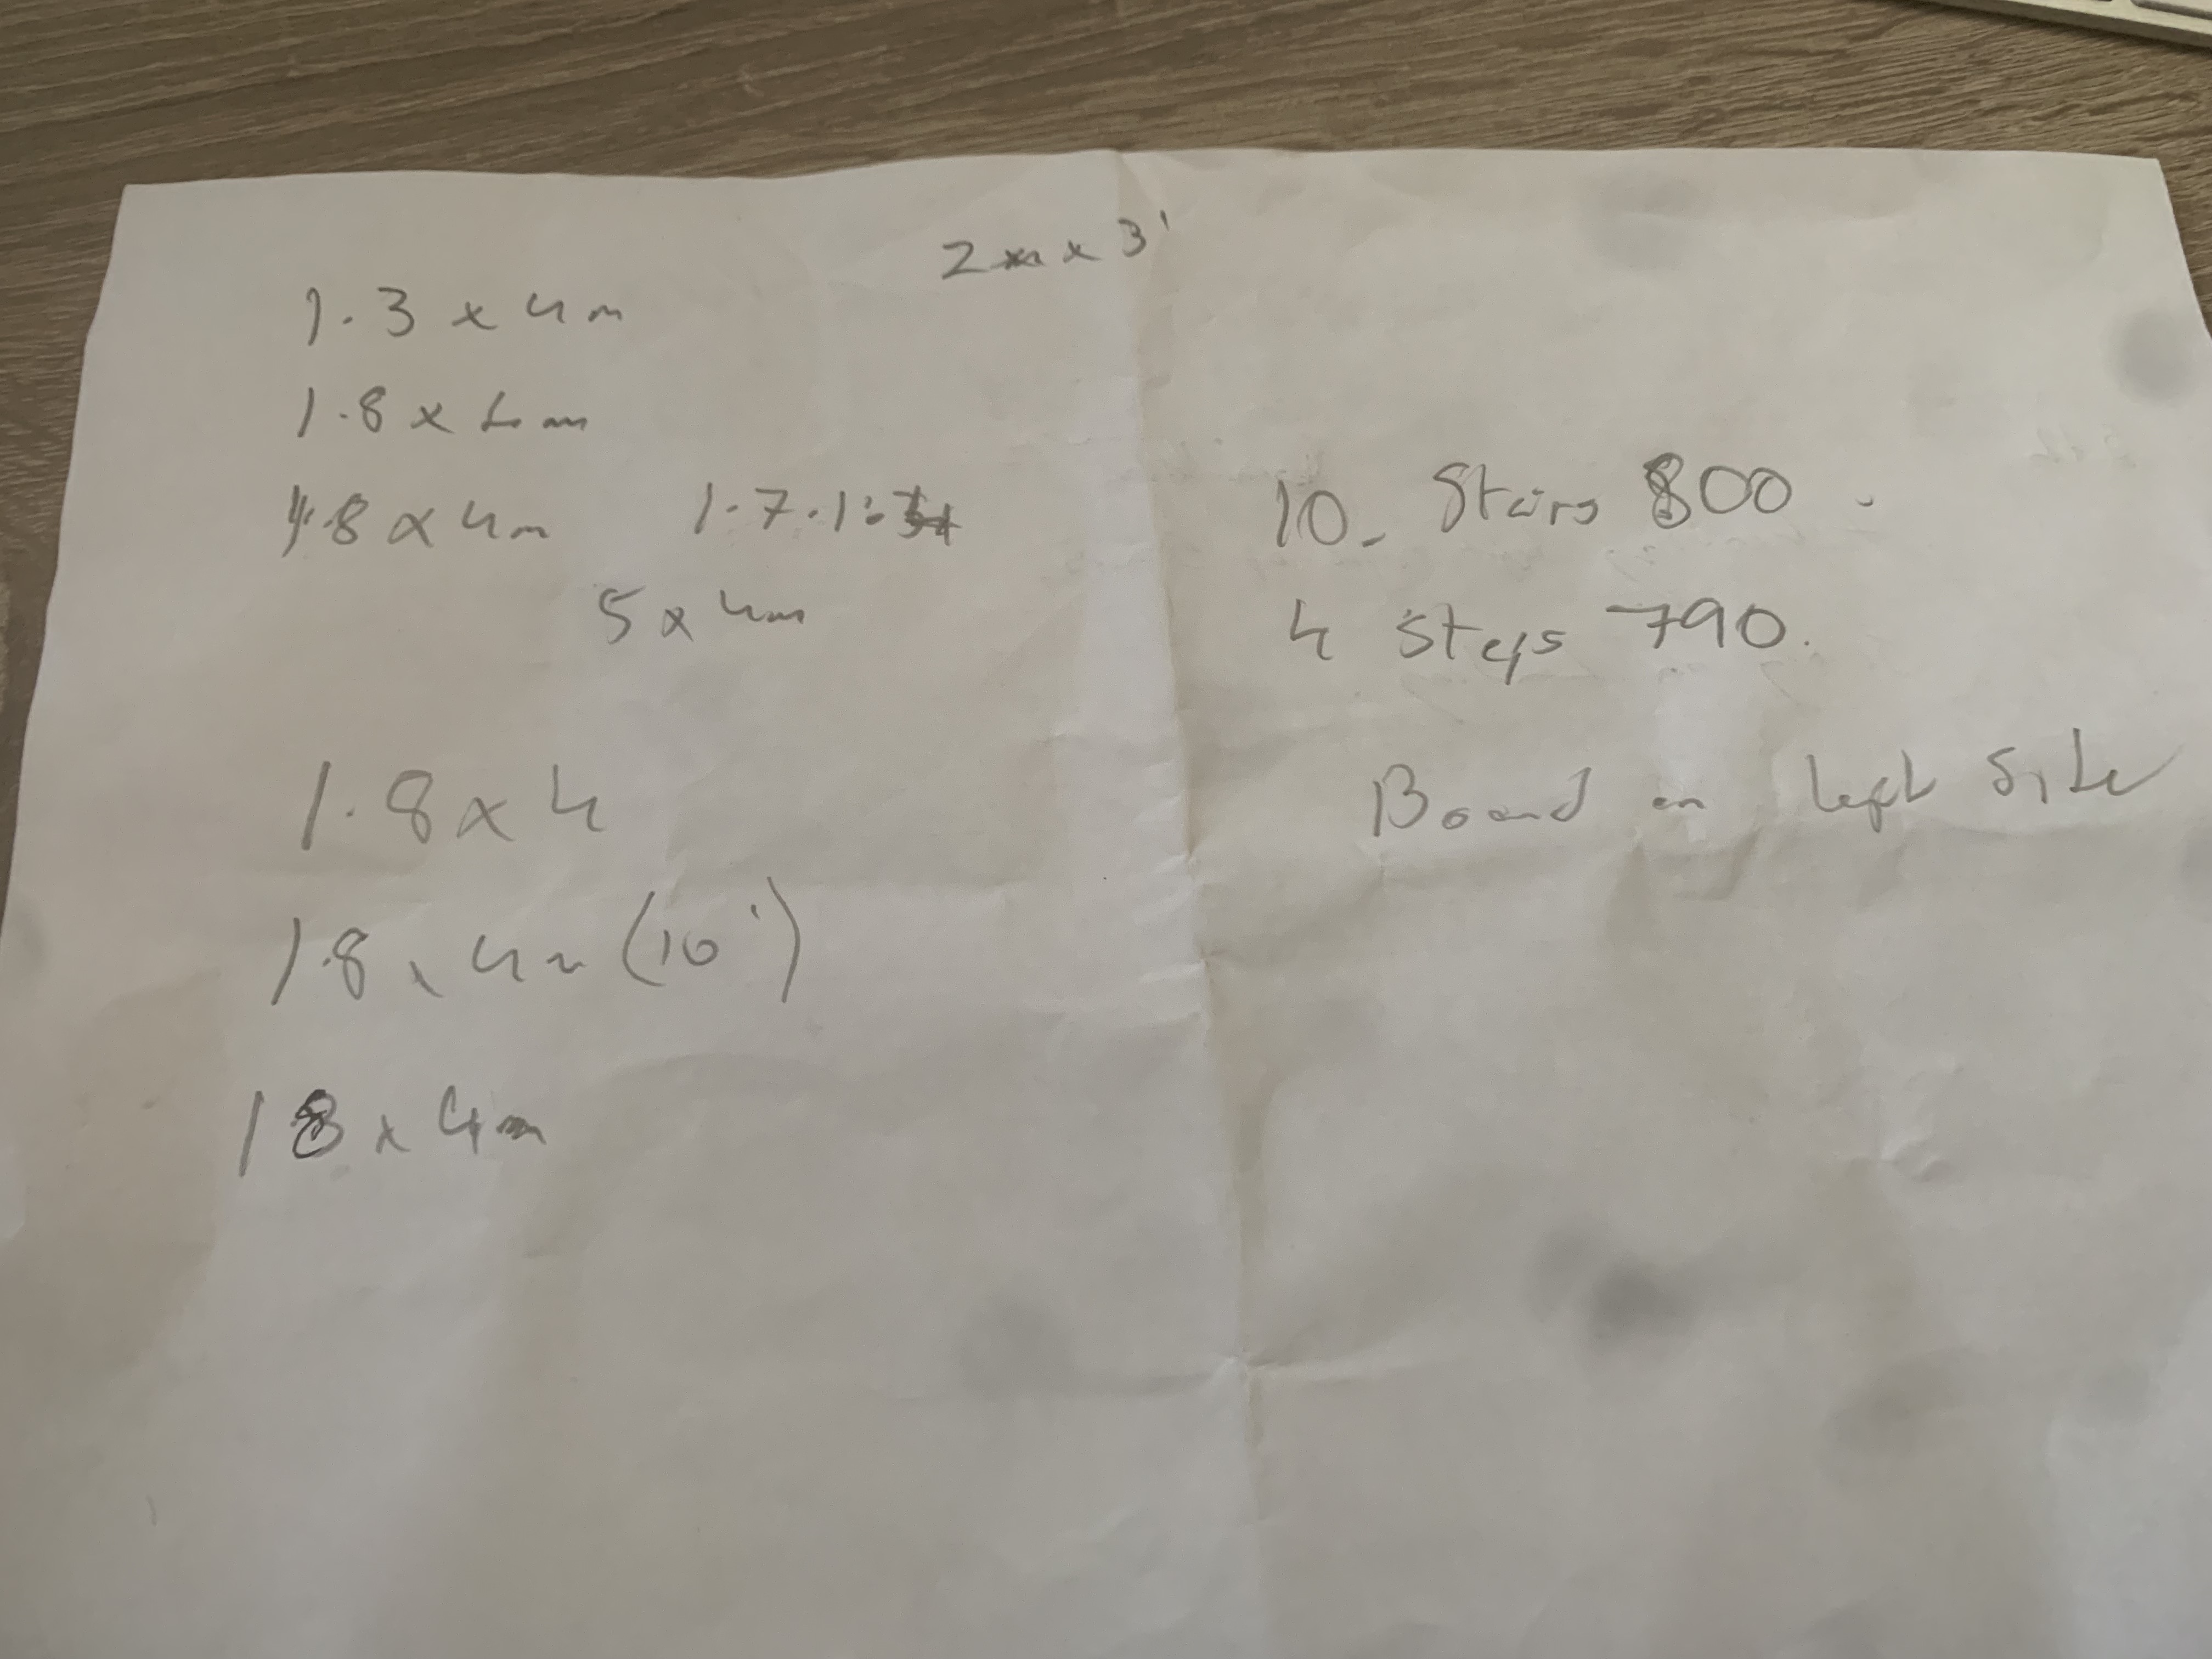 2m x 3'
1.3 x 4m
1.8 x 4m
1.8 x 4m 1.7.1:
5 x 4m
1.8 x 4
1.8 x 4m (10')
18 x 4m
10 - Stairs 800.
4 steps 790.
Board on left side